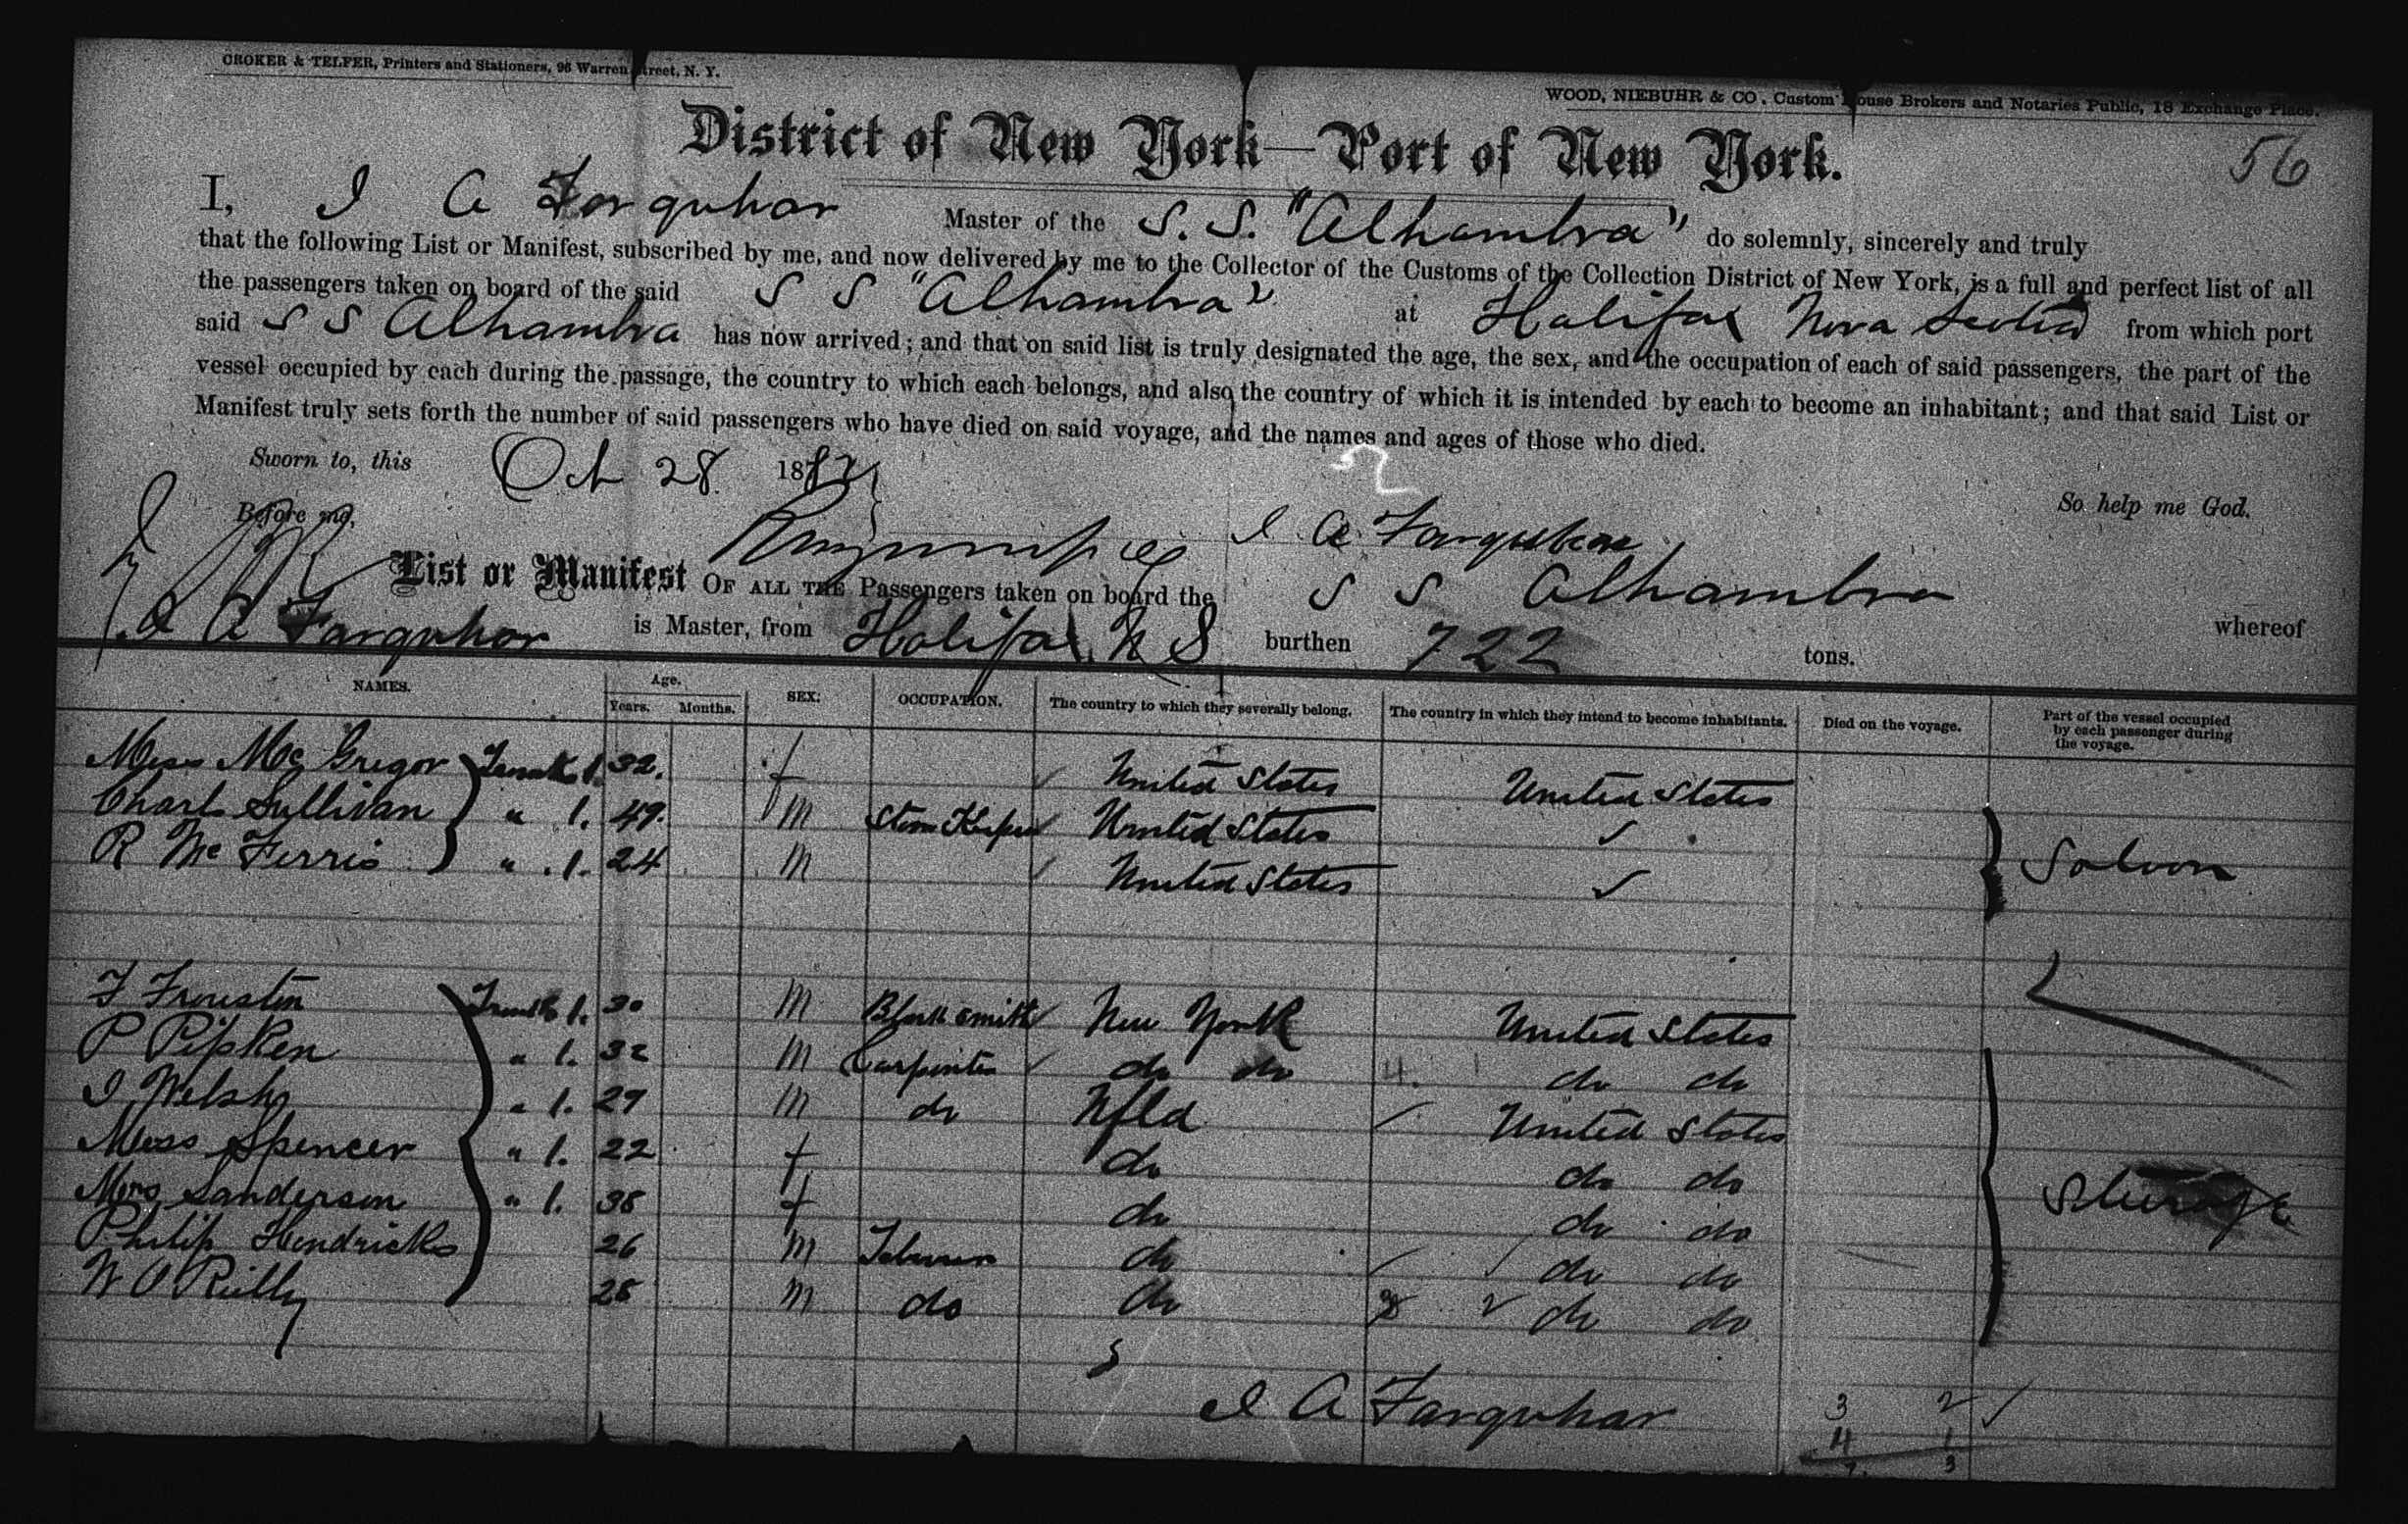 CROKER & TELFER, Printers and Stationers, 96 Warren Street, N. Y.
WOOD, NIEBUHR & CO., Custom House Brokers and Notaries Public, 18 Exchange Place.
District of New York—Port of New York.
56
I, I A Farquhar Master of the S. S. "Alhambra" do solemnly, sincerely and truly
that the following List or Manifest, subscribed by me, and now delivered by me to the Collector of the Customs of the Collection District of New York, is a full and perfect list of all
the passengers taken on board of the said S S "Alhambra" at Halifax Nova Scotia from which port
said S S Alhambra has now arrived; and that on said list is truly designated the age, the sex, and the occupation of each of said passengers, the part of the
vessel occupied by each during the passage, the country to which each belongs, and also the country of which it is intended by each to become an inhabitant; and that said List or
Manifest truly sets forth the number of said passengers who have died on said voyage, and the names and ages of those who died.
Sworn to, this Oct 28 1882
So help me God.
Before me,
I A Farquhar
List or Manifest OF ALL THE Passengers taken on board the S S Alhambra whereof
I A Farquhar is Master, from Halifax N S burthen 722 tons.
NAMES. Age. Years. Months. SEX. OCCUPATION. The country to which they severally belong. The country in which they intend to become inhabitants. Died on the voyage. Part of the vessel occupied by each passenger during the voyage.
Miss Mc Gregor 1. 32. f United States United States
Charls Sullivan " 1. 49. M Store Keeper United States ✓ Saloon
R Mc Ferris " 1. 24 M United States ✓
F 1. 30 M Blacksmith New York United States
P Pipken " 1. 32 M Carpenter do do 4. do do
I Welsh " 1. 27 M do Nfld United States
Miss Spencer " 1. 22 f do do do
Mrs Sanderson " 1. 38 f do do do Steerage
Philip Hendricks 26 M do do do
W O Reilly 28 M do do do do
5
I A Farquhar
3 2 ✓
4 1
7. 3